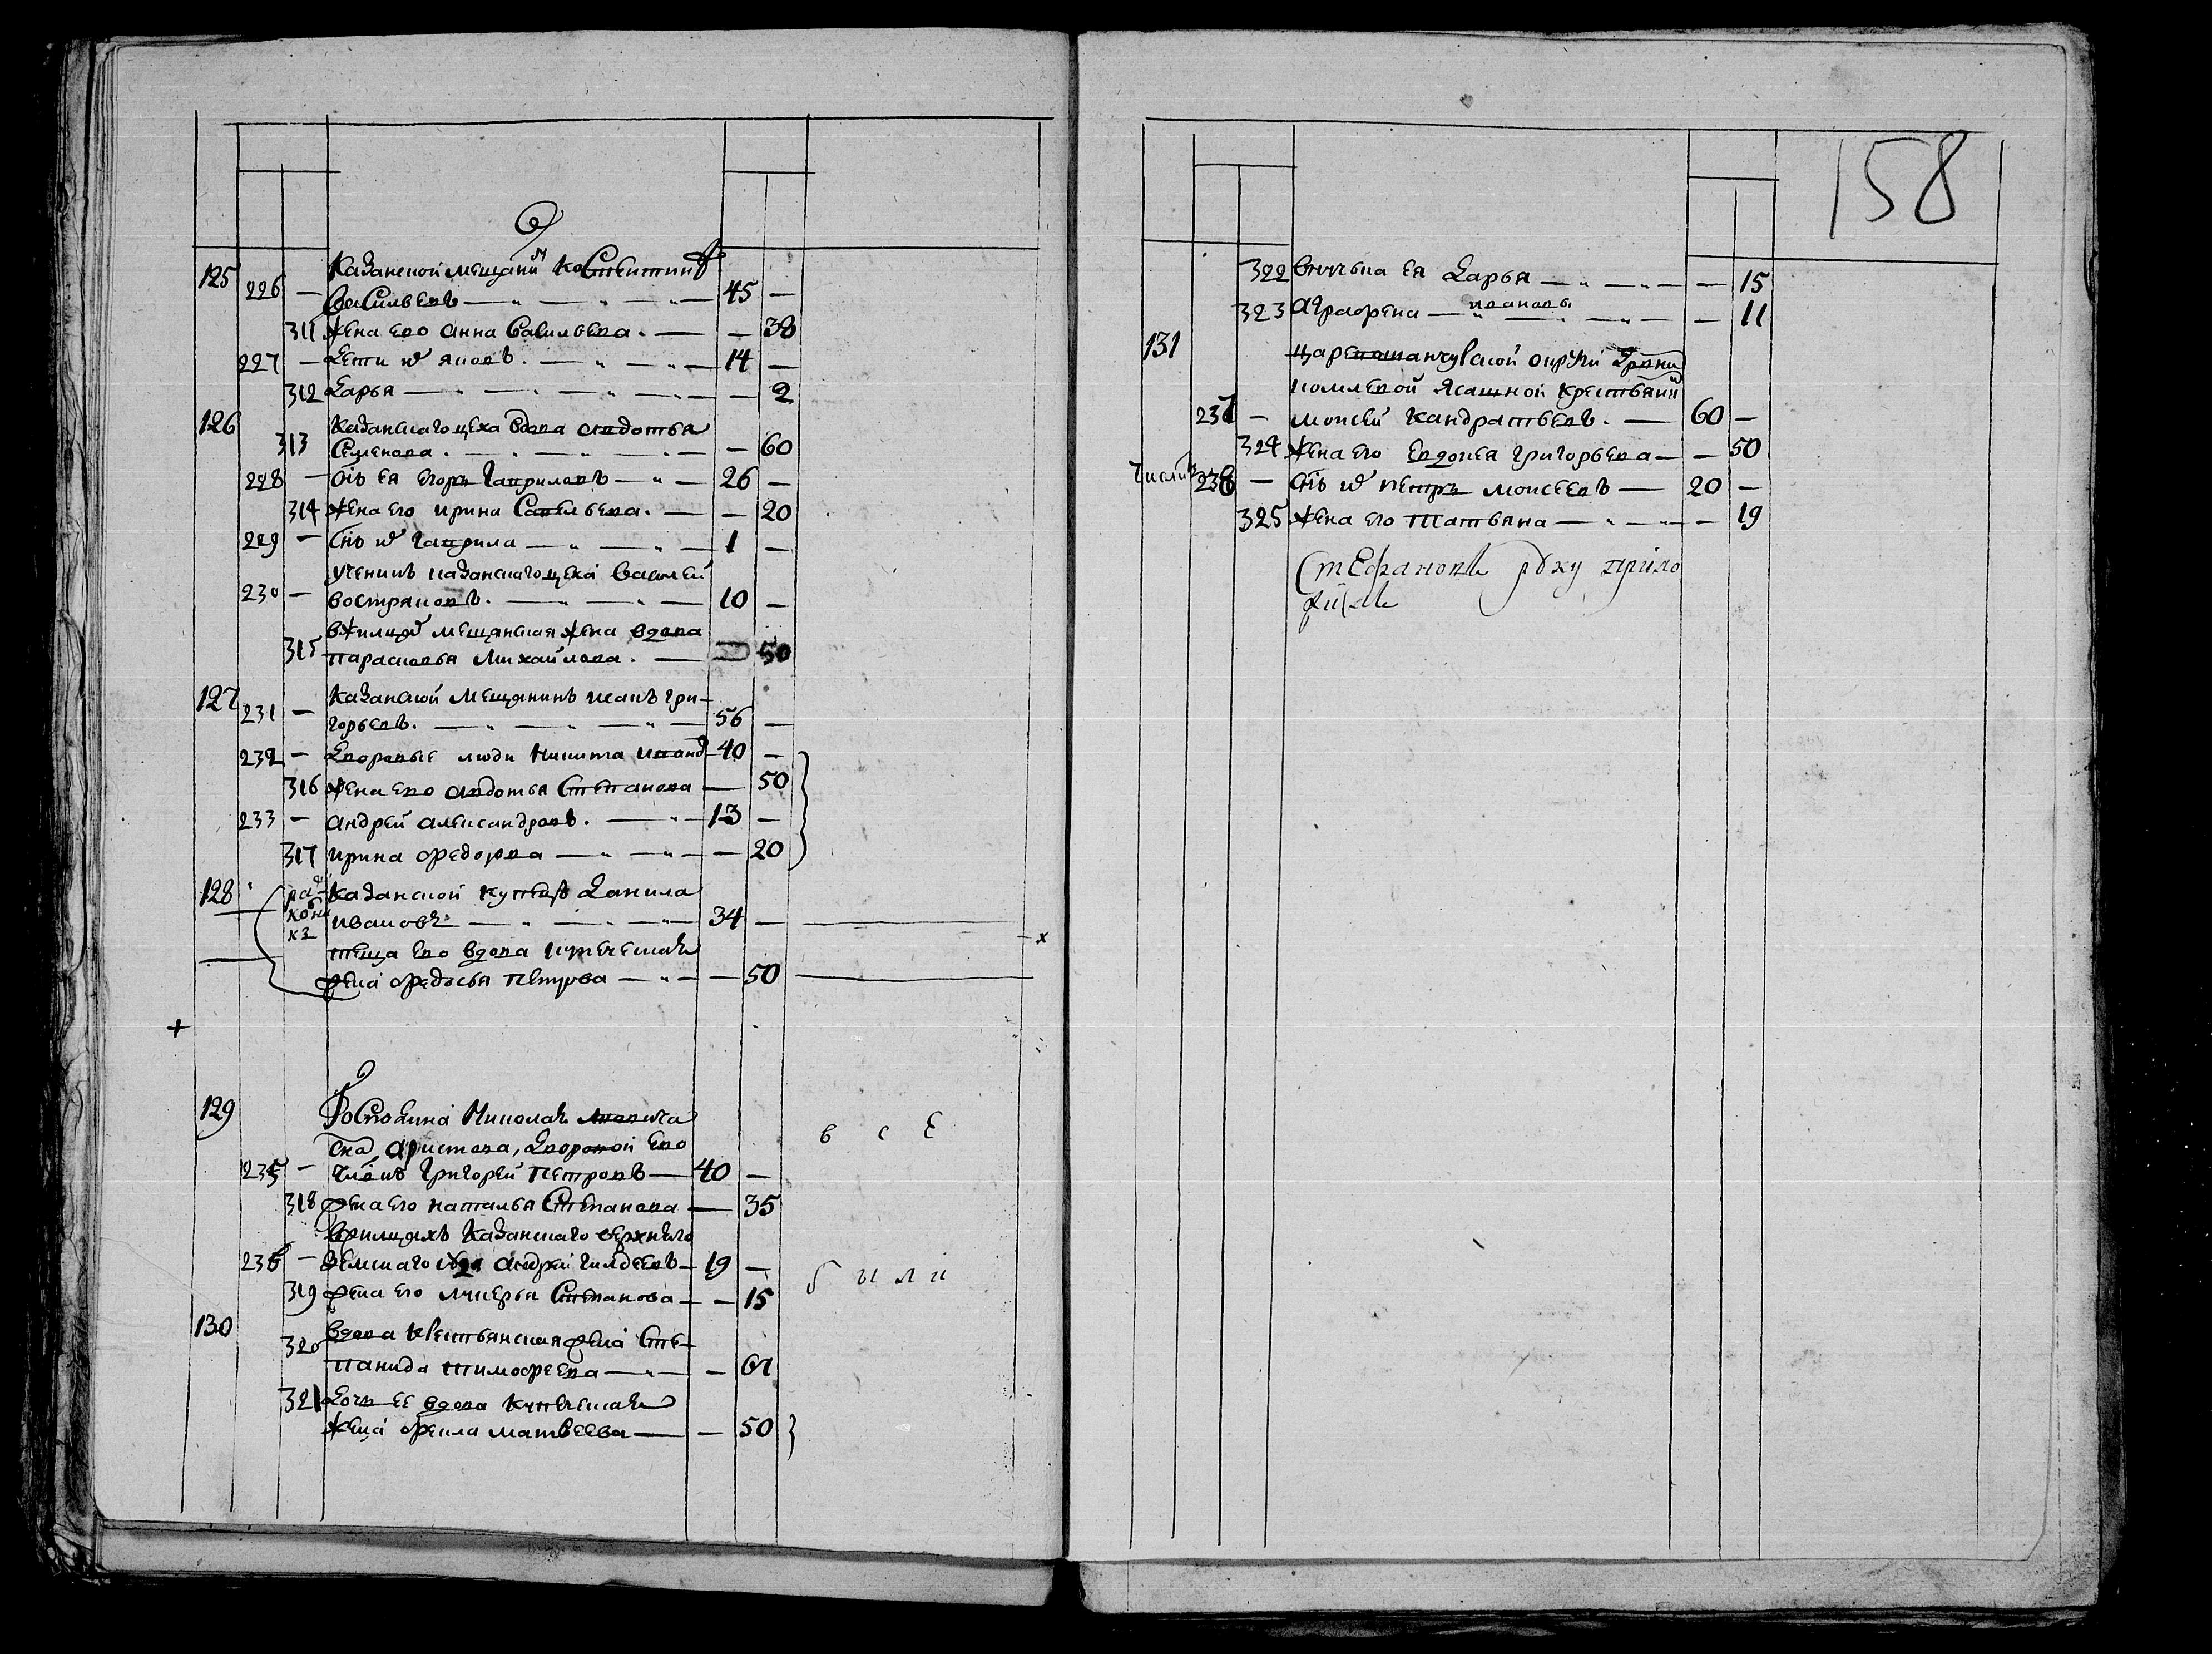 125 226 — Казанской мещанинъ Костентинъ
Васильевъ — 45 —
311 жена ево Анна Савельева — — 38
227 — дети их Яковъ — 14 —
312 Дарья — — 2
126 Казанскаго цеха вдова Авдотья
313 Семенова — — 60
228 — снъ ея Егоръ Гавриловъ — 26 —
314 жена его Ирина Савельева — — 20
229 — снъ их Гаврила — 1 —
ученикъ казанскаго цеха Василей
230 — Востряковъ — 10 —
в жилцах мещанская жена вдова
315 Парасковья Михайлова — 50
127 Казанской мещянинъ Исакъ Гри-
231 — горьевъ — 56 —
232 — Дворовые люди Никита Иванов 40 —
316 жена ево Авдотья Степанова — 50
233 — Андрей Александровъ — 13 —
317 Ирина Федорова — — 20
128 Казанской купецъ Данила
Ивановъ — 34 —
теща ево вдова купеческая
жена Федосья Петрова — — 50
129 Господина Николая
сна Аристова, дворовой ево
235 — члвкъ Григорей Петровъ — 40 —
318 жена его Наталья Степанова — 35
в жилцахъ Казанскаго верхняго
236 — земскаго суда Андрей — 19 —
319 жена его Лукерья Степанова — — 15
130 вдова крестьянская жена Сте-
320 панида Тимофеева — — 67
321 дочь ее вдова купеческая
жена Фекла Матвеева — — 50
все
были
158
322 внучька ея Дарья — — 15
323 Аграфена — Ивановы — — 11
131 Царевоганчурской округи
ясашной крестьянин
237 — Моисей Кандратьевъ — 60 —
324 жена его Евдокея Григорьева — — 50
238 — снъ их Петръ Моисеевъ — 20 —
325 жена его Татьяна — — 19
Стефановъ руку прило
жилъ